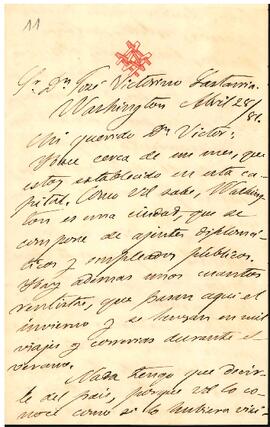 11
Sr. Dn José Victorino Lastarria.
Washington Abril 28/81.
Mi querido Dn Victor:
Hace cerca de un mes, que
estoy establecido en esta ca-
pital. Como Vd sabe, Washing-
ton es una ciudad, que se
compone de ajentes diplomá-
ticos y empleados públicos.
Hay ademas unos cuantos
rentistas, que pasan aquí el
invierno y se lanzan en mil
viajes y correrias durante el
verano.
Nada tengo que decir-
le del país, porque Vd lo co-
noce como si lo hubiera visi-